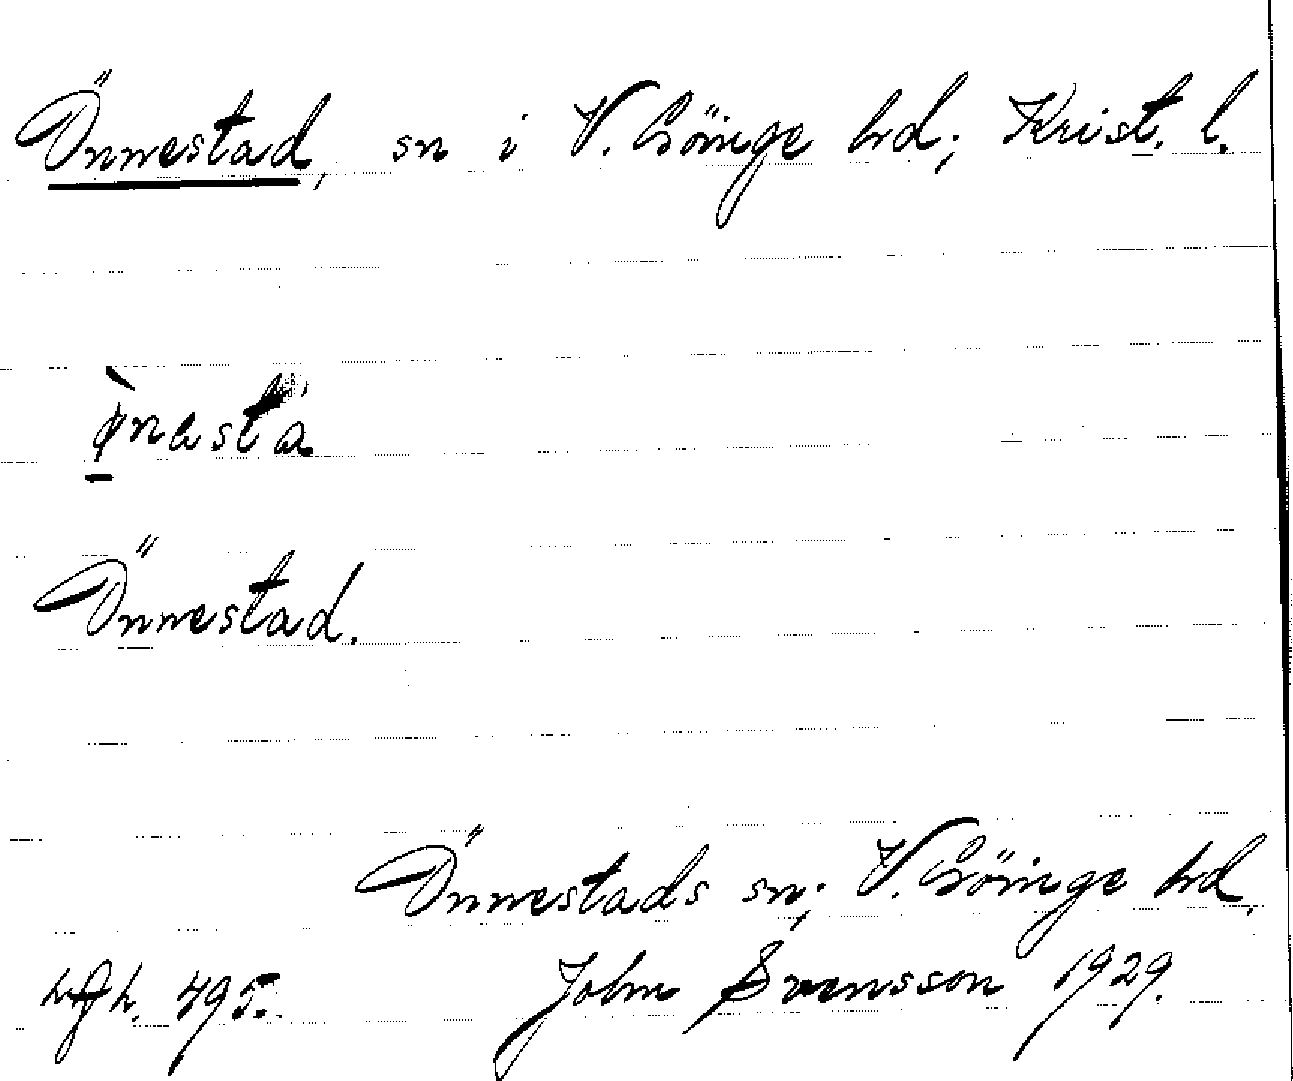 Önnestad, sn i V. Göinge hd; Krist. l.
Önnestad.
Önnestads sn; V. Göinge hd,
495. John Svensson 1929.